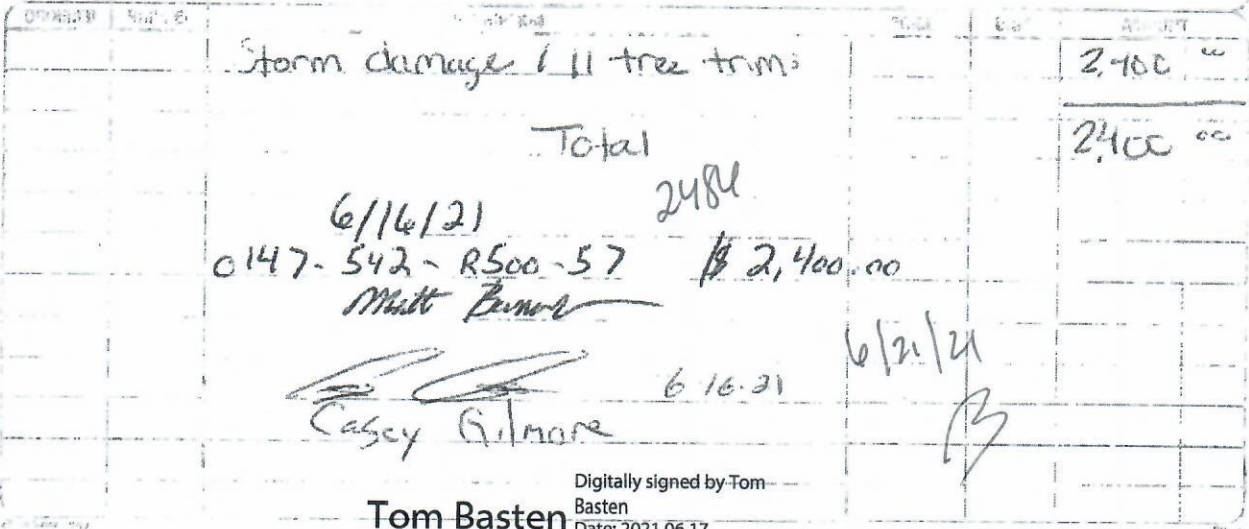 Storm damage / 11 tree trims 2,400 00
Total 2,400 00
2484
6/16/21
0147-542-R500-57 $ 2,400.00
Matt
6/21/21
6-16-21
Casey Gilmore
Digitally signed by Tom
Tom Basten Basten
Date: 2021.06.17